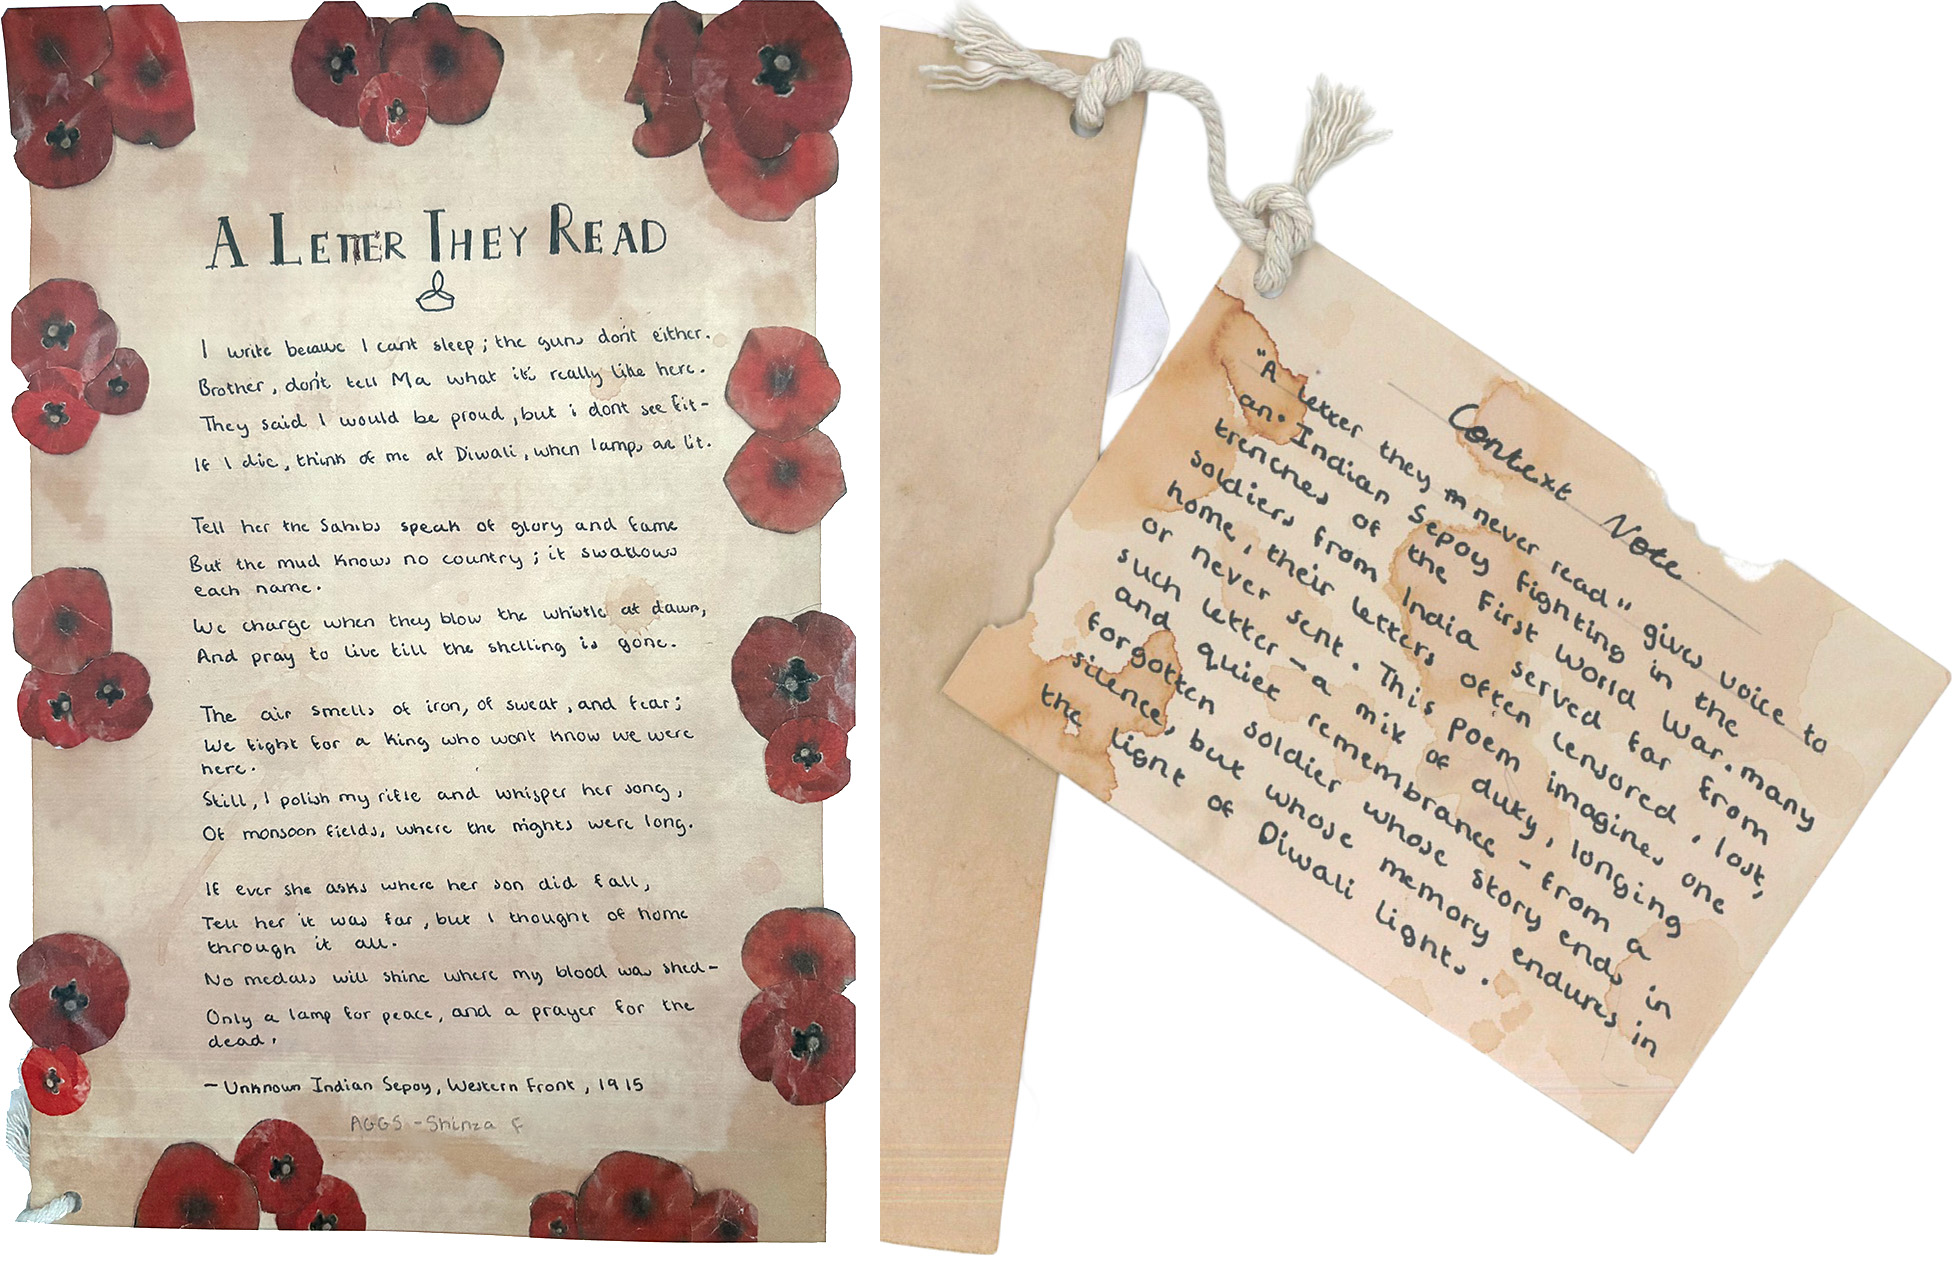 A LETTER THEY READ
I write because I cant sleep; the guns don't either.
Brother, don't tell Ma what it's really like here.
They said I would be proud, but i dont see fit-
If I die, think of me at Diwali, when lamps are lit.
Tell her the Sahibs speak of glory and fame
But the mud knows no country; it swallows
each name.
We charge when they blow the whistle at dawn,
And pray to live till the shelling is gone.
The air smells of iron, of sweat, and fear;
We fight for a King who wont know we were
here.
Still, I polish my rifle and whisper her song,
Of monsoon fields, where the nights were long.
If ever she asks where her son did fall,
Tell her it was far, but I thought of home
through it all.
No medals will shine where my blood was shed-
Only a lamp for peace, and a prayer for the
dead.
- Unknown Indian Sepoy, Western Front, 1915
AGGS - Shinza F
Context Note
"A letter they never read" gives voice to
an Indian Sepoy fighting in the
trenches of the First World War. many
soldiers from India served far from
home, their letters often censored, lost,
or never sent. This poem imagines one
such letter - a mix of duty, longing
and quiet remembrance - from a
forgotten soldier whose story ends in
silence, but whose memory endures in
the light of Diwali lights.